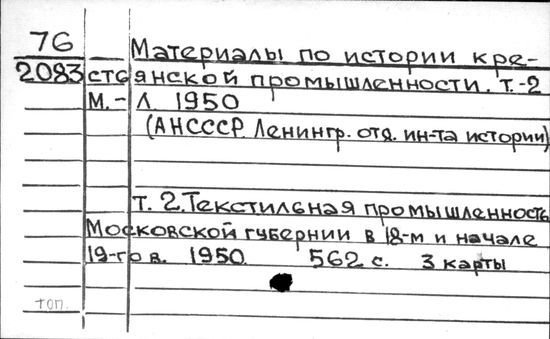 76
2083
Материалы по истории кре-
стьянской промышленности. т.-2
М.-Л. 1950
(АНСССР. Ленингр. отд. ин-та истории)
т. 2. Текстильная промышленность
Московской губернии в 18-м и начале
19-го в. 1950 562 с. 3 карты
топ.